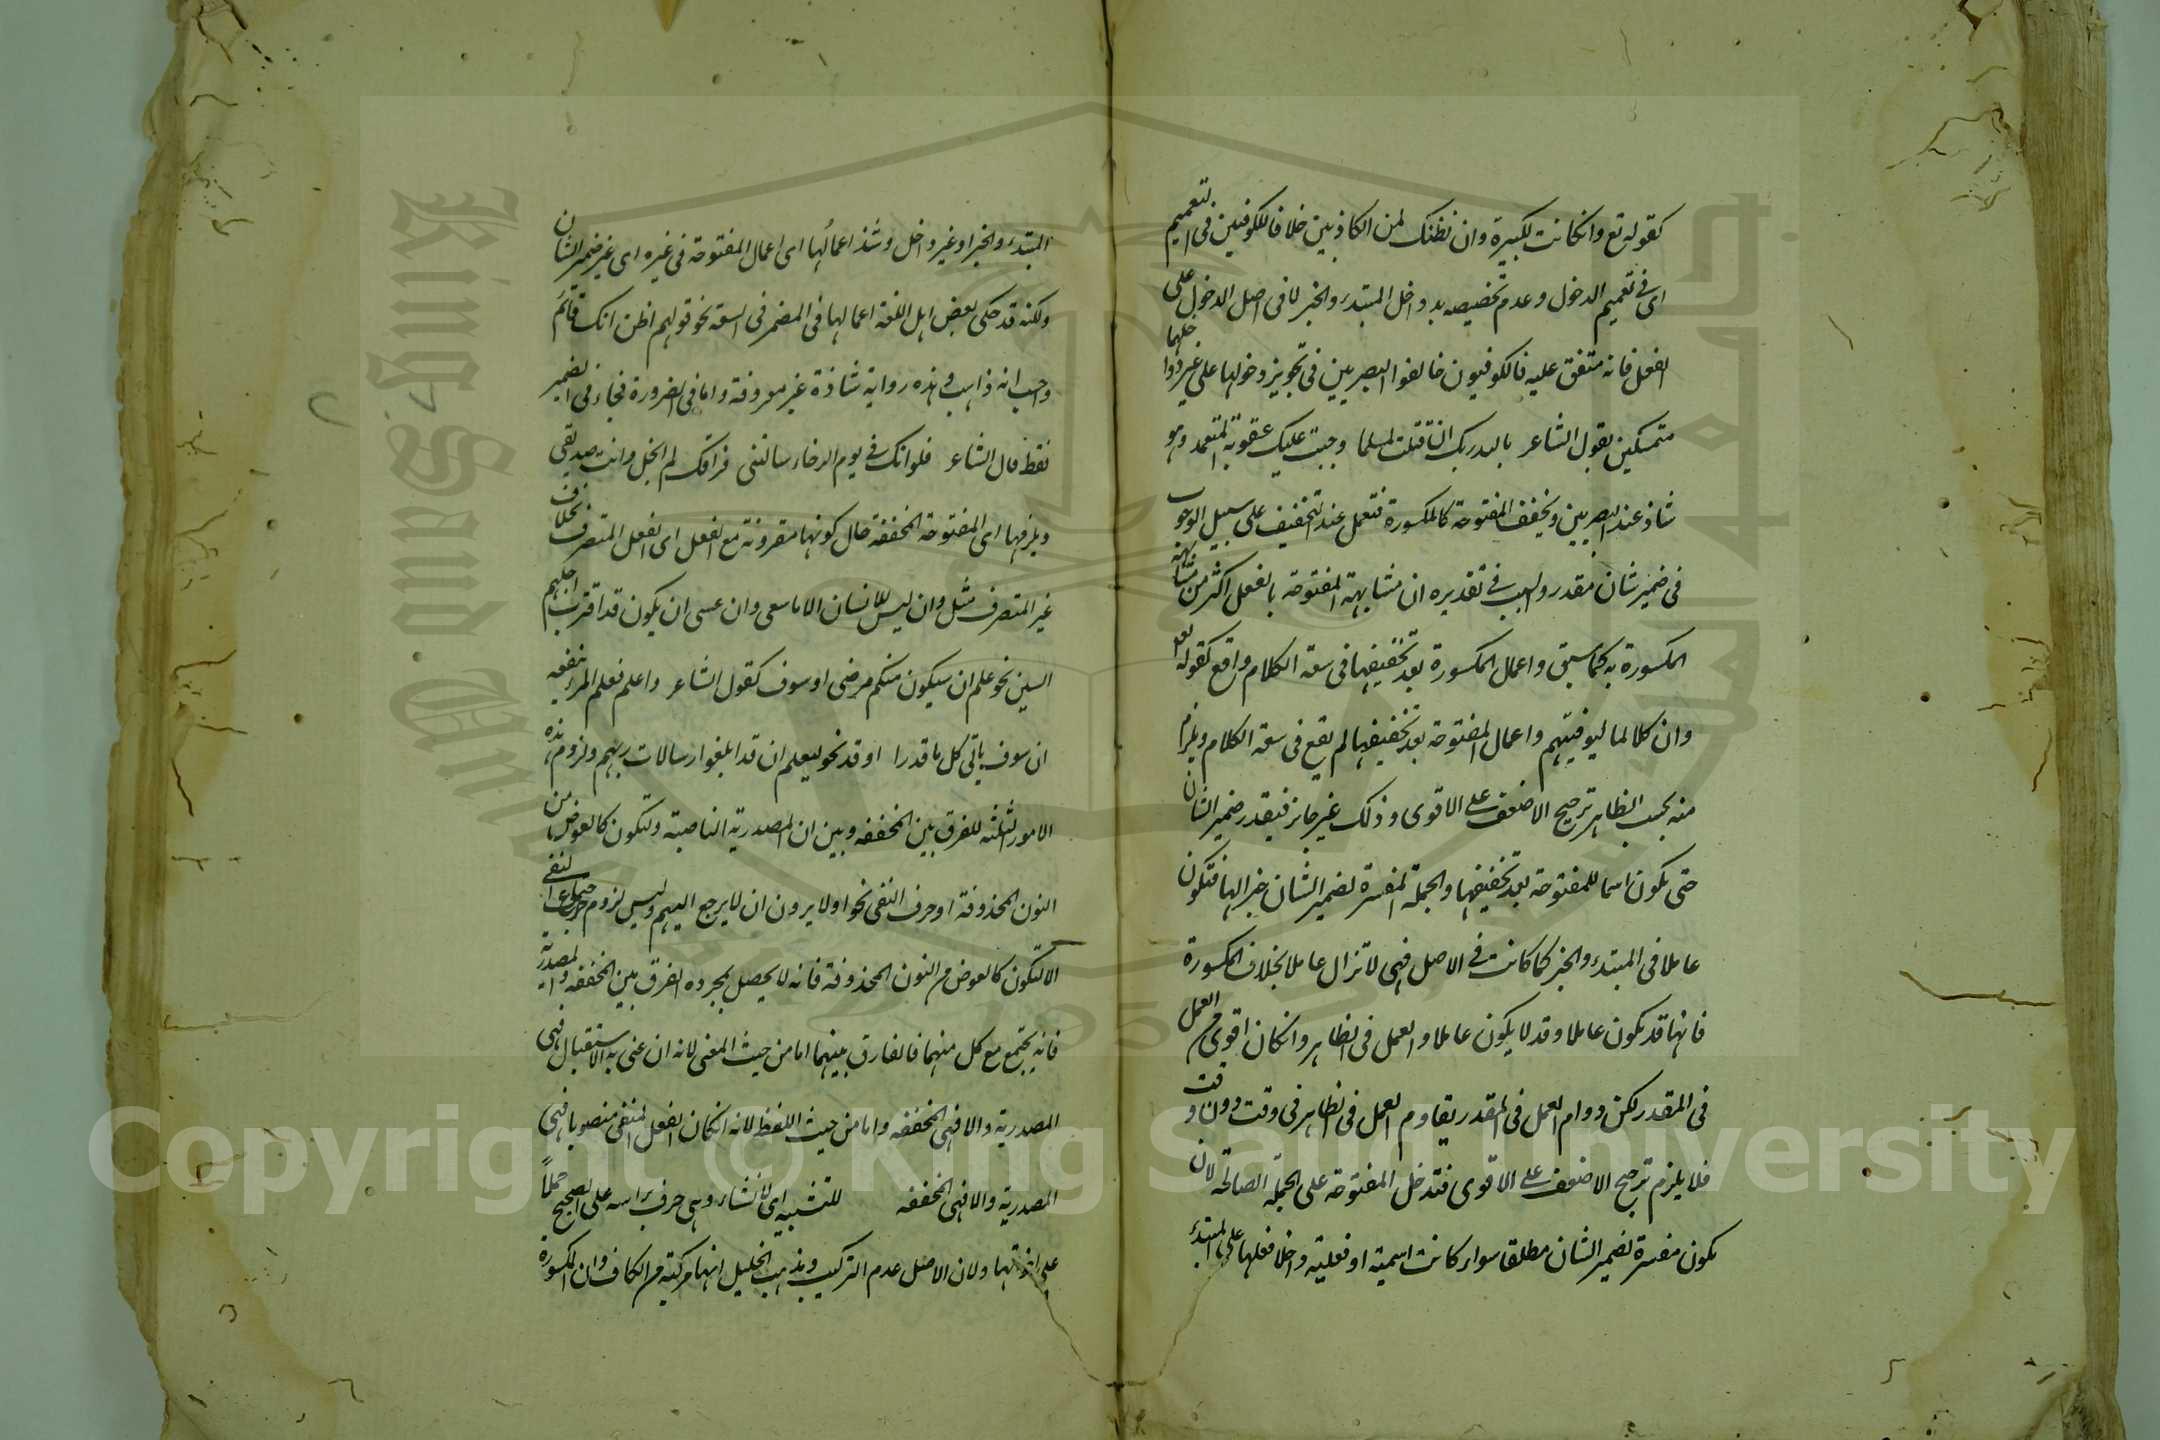 كقوله تع وانكانت لكبيرة وان نظنك لمن الكاذبين خلافا للكوفيين فى التعميم
اى فى تعميم الدخول وعدم تخصيصه بدواخل المبتدء والخبر لا فى اصل الدخول على
الفعل فانه متفق عليه فالكوفيون خالفوا البصريين فى تجويز دخولها على غير دواخلهما
متمسكين بقول الشاعر بالله ربك ان قتلت لمسلما وجبت عليك عقوبة المتعمد وهو
شاذ عند البصريين وتخفف المفتوحة كالمكسورة فتعمل عند التخفيف على سبيل الوجوب
فى ضمير شان مقدر والسبب فى تقديره ان مشابهة المفتوحة بالفعل اكثر من مشابهة
المكسورة به كما سبق واعمال المكسورة بعد تخفيفها فى سعة الكلام واقع كقوله تعم
وان كلا لما ليوفينهم واعمال المفتوحة بعد تخفيفها لم يقع فى سعة الكلام ويلزم
منه بحسب الظاهر ترجيح الاضعف على الاقوى وذلك غير جائز فيقدر ضمير الشان
حتى يكون اسما للمفتوحة بعد تخفيفها والجملة المفسرة لضمير الشان خبرا لها فتكون
عاملا فى المبتدء والخبر كما كانت فى الاصل فهى لا تزال عاملا بخلاف المكسورة
فانها قد تكون عاملا وقد لا يكون عاملا والعمل فى الظاهر وانكان اقوى من العمل
فى المقدر لكن دوام العمل فى المقدر يقاوم العمل فى الظاهر فى وقت دون وقت
فلا يلزم ترجيح الاضعف على الاقوى فتدخل المفتوحة على الجملة الصالحة لان
يكون مفسرة لضمير الشان مطلقا سواء كانت اسمية او فعلية داخلا فعلها على المبتدء
المبتدء والخبر او غير داخل وشذ اعمالها اى اعمال المفتوحة فى غيره اى غير ضمير الشان
ولكنه قد حكى بعض اهل اللغة اعمالها فى المضمر فى السعة نحو قولهم اظن انك قائم
واحسب انه ذاهب وهذه رواية شاذة غير معروفة واما فى الضرورة فجاء فى الضمير
فقط قال الشاعر فلو انك فى يوم الرخاء سالتنى فراقك لم ابخل وانت صديقى
ويلزمها اى المفتوحة المخففة حال كونها مقرونة مع الفعل اى الفعل المتصرف بخلاف
غير المتصرف مثل وان ليس للانسان الا ما سعى وان عسى ان يكون قد اقترب اجلهم
السين نحو علم ان سيكون منكم مرضى او سوف كقول الشاعر واعلم فعلم المرء ينفعه
ان سوف ياتى كل ما قدرا او قد نحو ليعلم ان قد ابلغوا رسالات ربهم ولزوم هذه
الامور الثلثة للفرق بين المخففة وبين ان المصدرية الناصبة ولتكون كالعوض من
النون المحذوفة او حرف النفى نحو اولا يرون ان لا يرجع اليهم وليس لزوم حرف النفى
الا لتكون كالعوض من النون المحذوفة فانه لا يحصل بمجرده الفرق بين المخففة والمصدرية
فانه يجتمع مع كل منهما فالفارق بينهما اما من حيث المعنى لانه ان عنى به الاستقبال فهى
المصدرية والا فهى المخففة واما من حيث اللفظ لانه انكان الفعل المنفى منصوبا فهى
المصدرية والا فهى المخففة للتشبيه اى لانشاء وهى حرف براسه على الصحيح حملا
على اخواتها ولان الاصل عدم التركيب ومذهب الخليل انها مركبة من الكاف وان المكسورة
King Saud University
Copyright © King Saud University